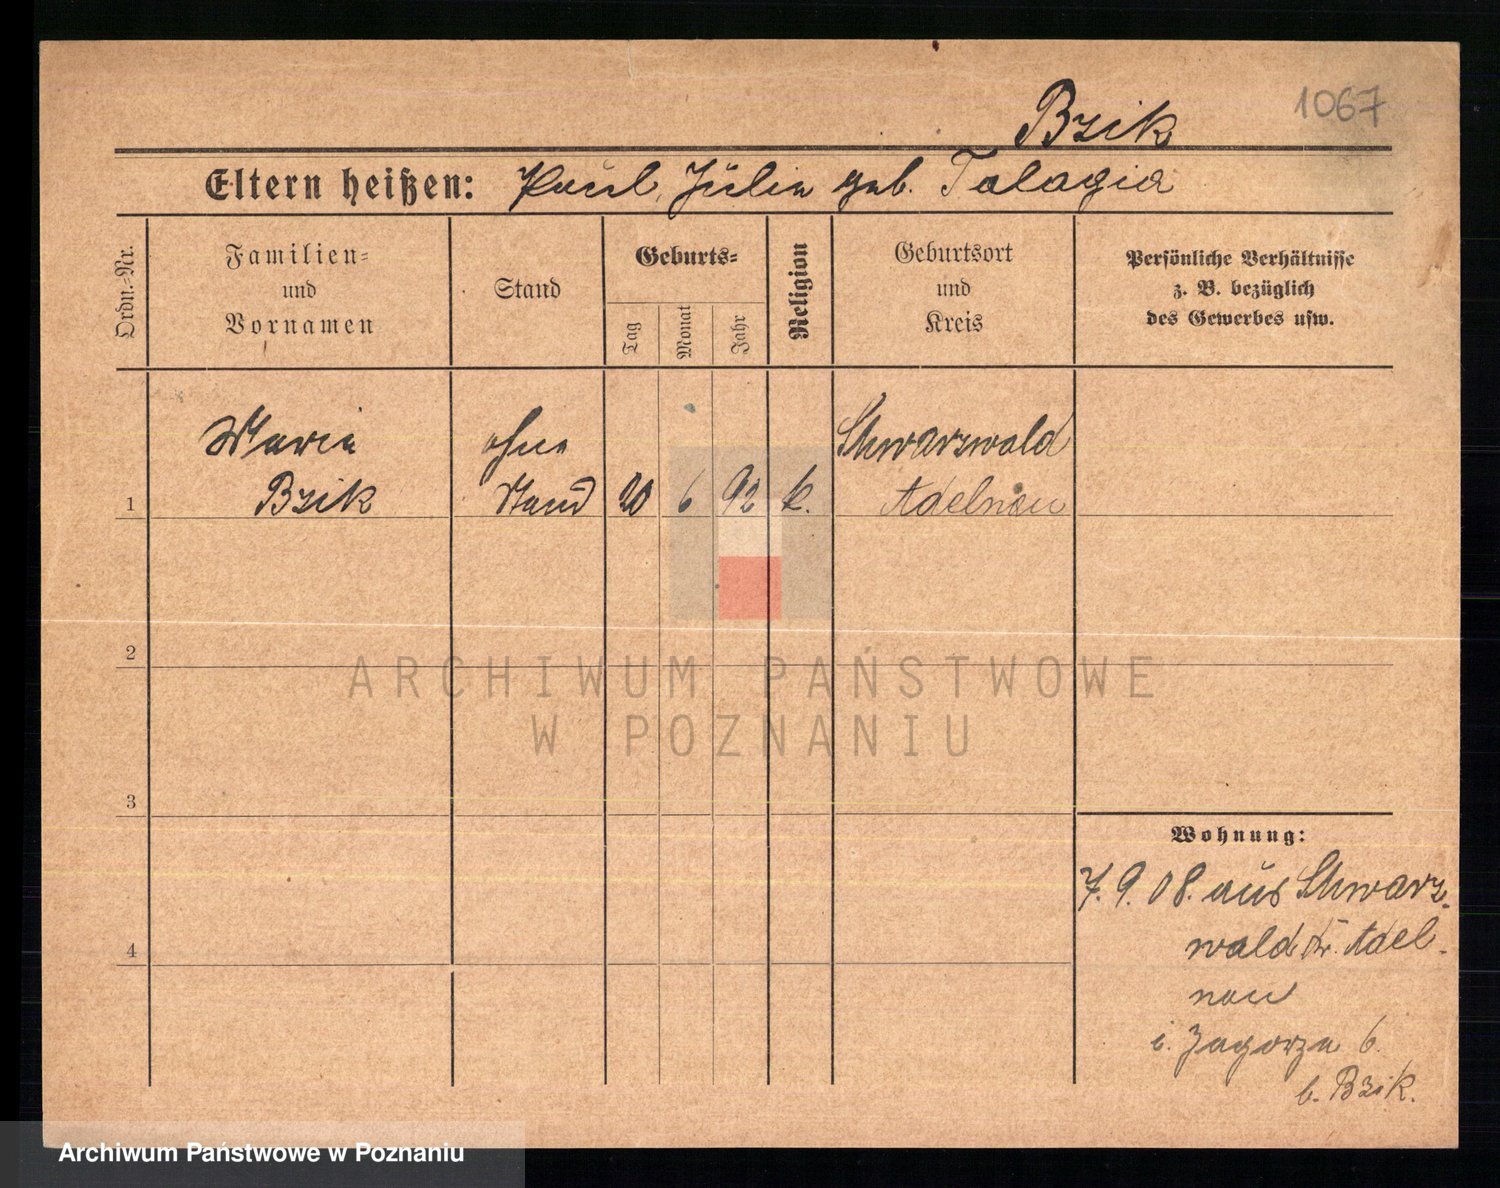 1067
Bzik
Eltern heißen: Paul, Julie geb. Talagia
Ordn.-Nr.
Familien-
und
Vornamen
Stand
Geburts-
Tag
Monat
Jahr
Religion
Geburtsort
und
Kreis
Persönliche Verhältnisse
z. B. bezüglich
des Gewerbes usw.
Marie ohne Schwarzwald
1 Bzik Stand 20 6 92 k. Adelnau
2
ARCHIWUM PAŃSTWOWE
W POZNANIU
3
Wohnung:
7. 9. 08. aus Schwarz-
wald Kr. Adel-
nau
4
i. Zagorze 6.
b. Bzik.
Archiwum Państwowe w Poznaniu